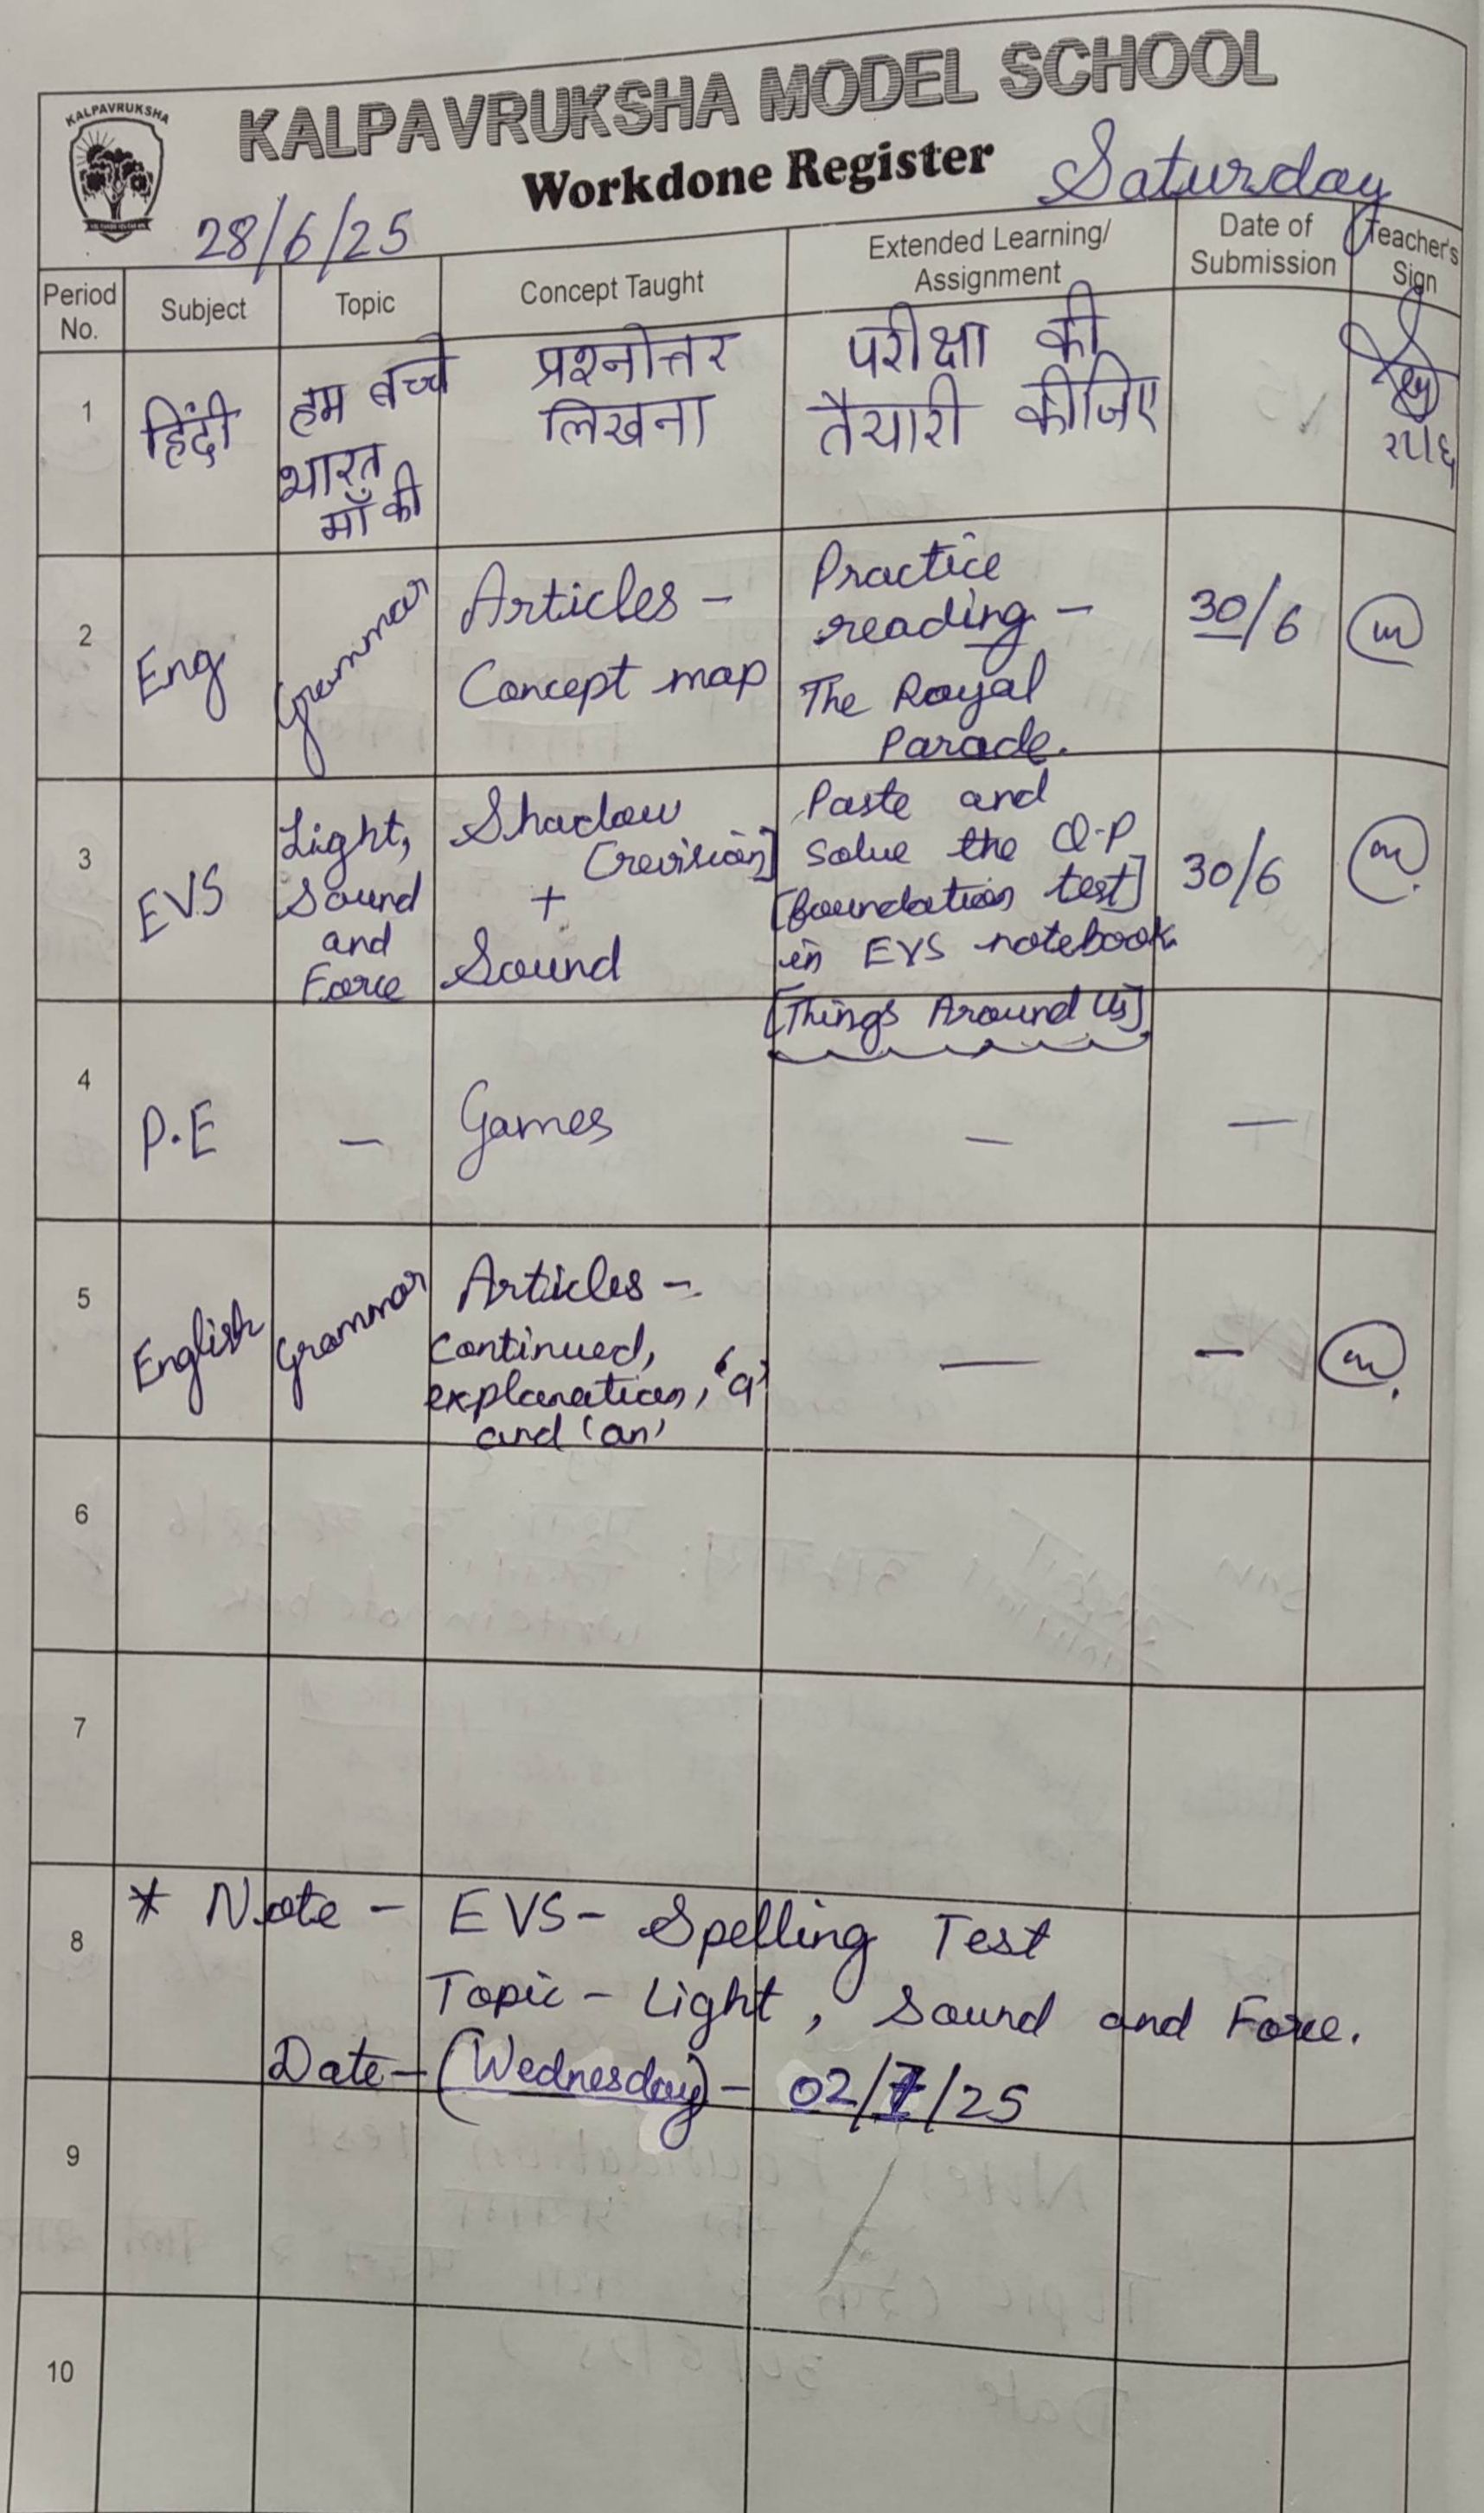 KALPAVRUKSHA
KALPAVRUKSHA MODEL SCHOOL
Workdone Register
Saturday
28/6/25
Period No.
Subject
Topic
Concept Taught
Extended Learning/ Assignment
Date of Submission
Teacher's Sign
1
हिंदी
हम बच्चे
भारत
माँ की
प्रश्नोत्तर
लिखना
परीक्षा की
तैयारी कीजिए
2
Eng
Grammar
Articles -
Concept map
Practice
reading -
The Royal
Parade.
30/6
3
EVS
Light,
Sound
and
Force
Shadow
[revision]
+
Sound
Paste and
solve the Q.P
[foundation test]
in EVS notebook.
[Things Around Us]
30/6
4
P.E
-
Games
-
-
5
English
Grammar
Articles -
Continued,
explanation, 'a'
and 'an'
-
-
6
7
8
* Note - EVS - Spelling Test
Topic - Light, Sound and Force.
Date - (Wednesday) - 02/7/25
9
10